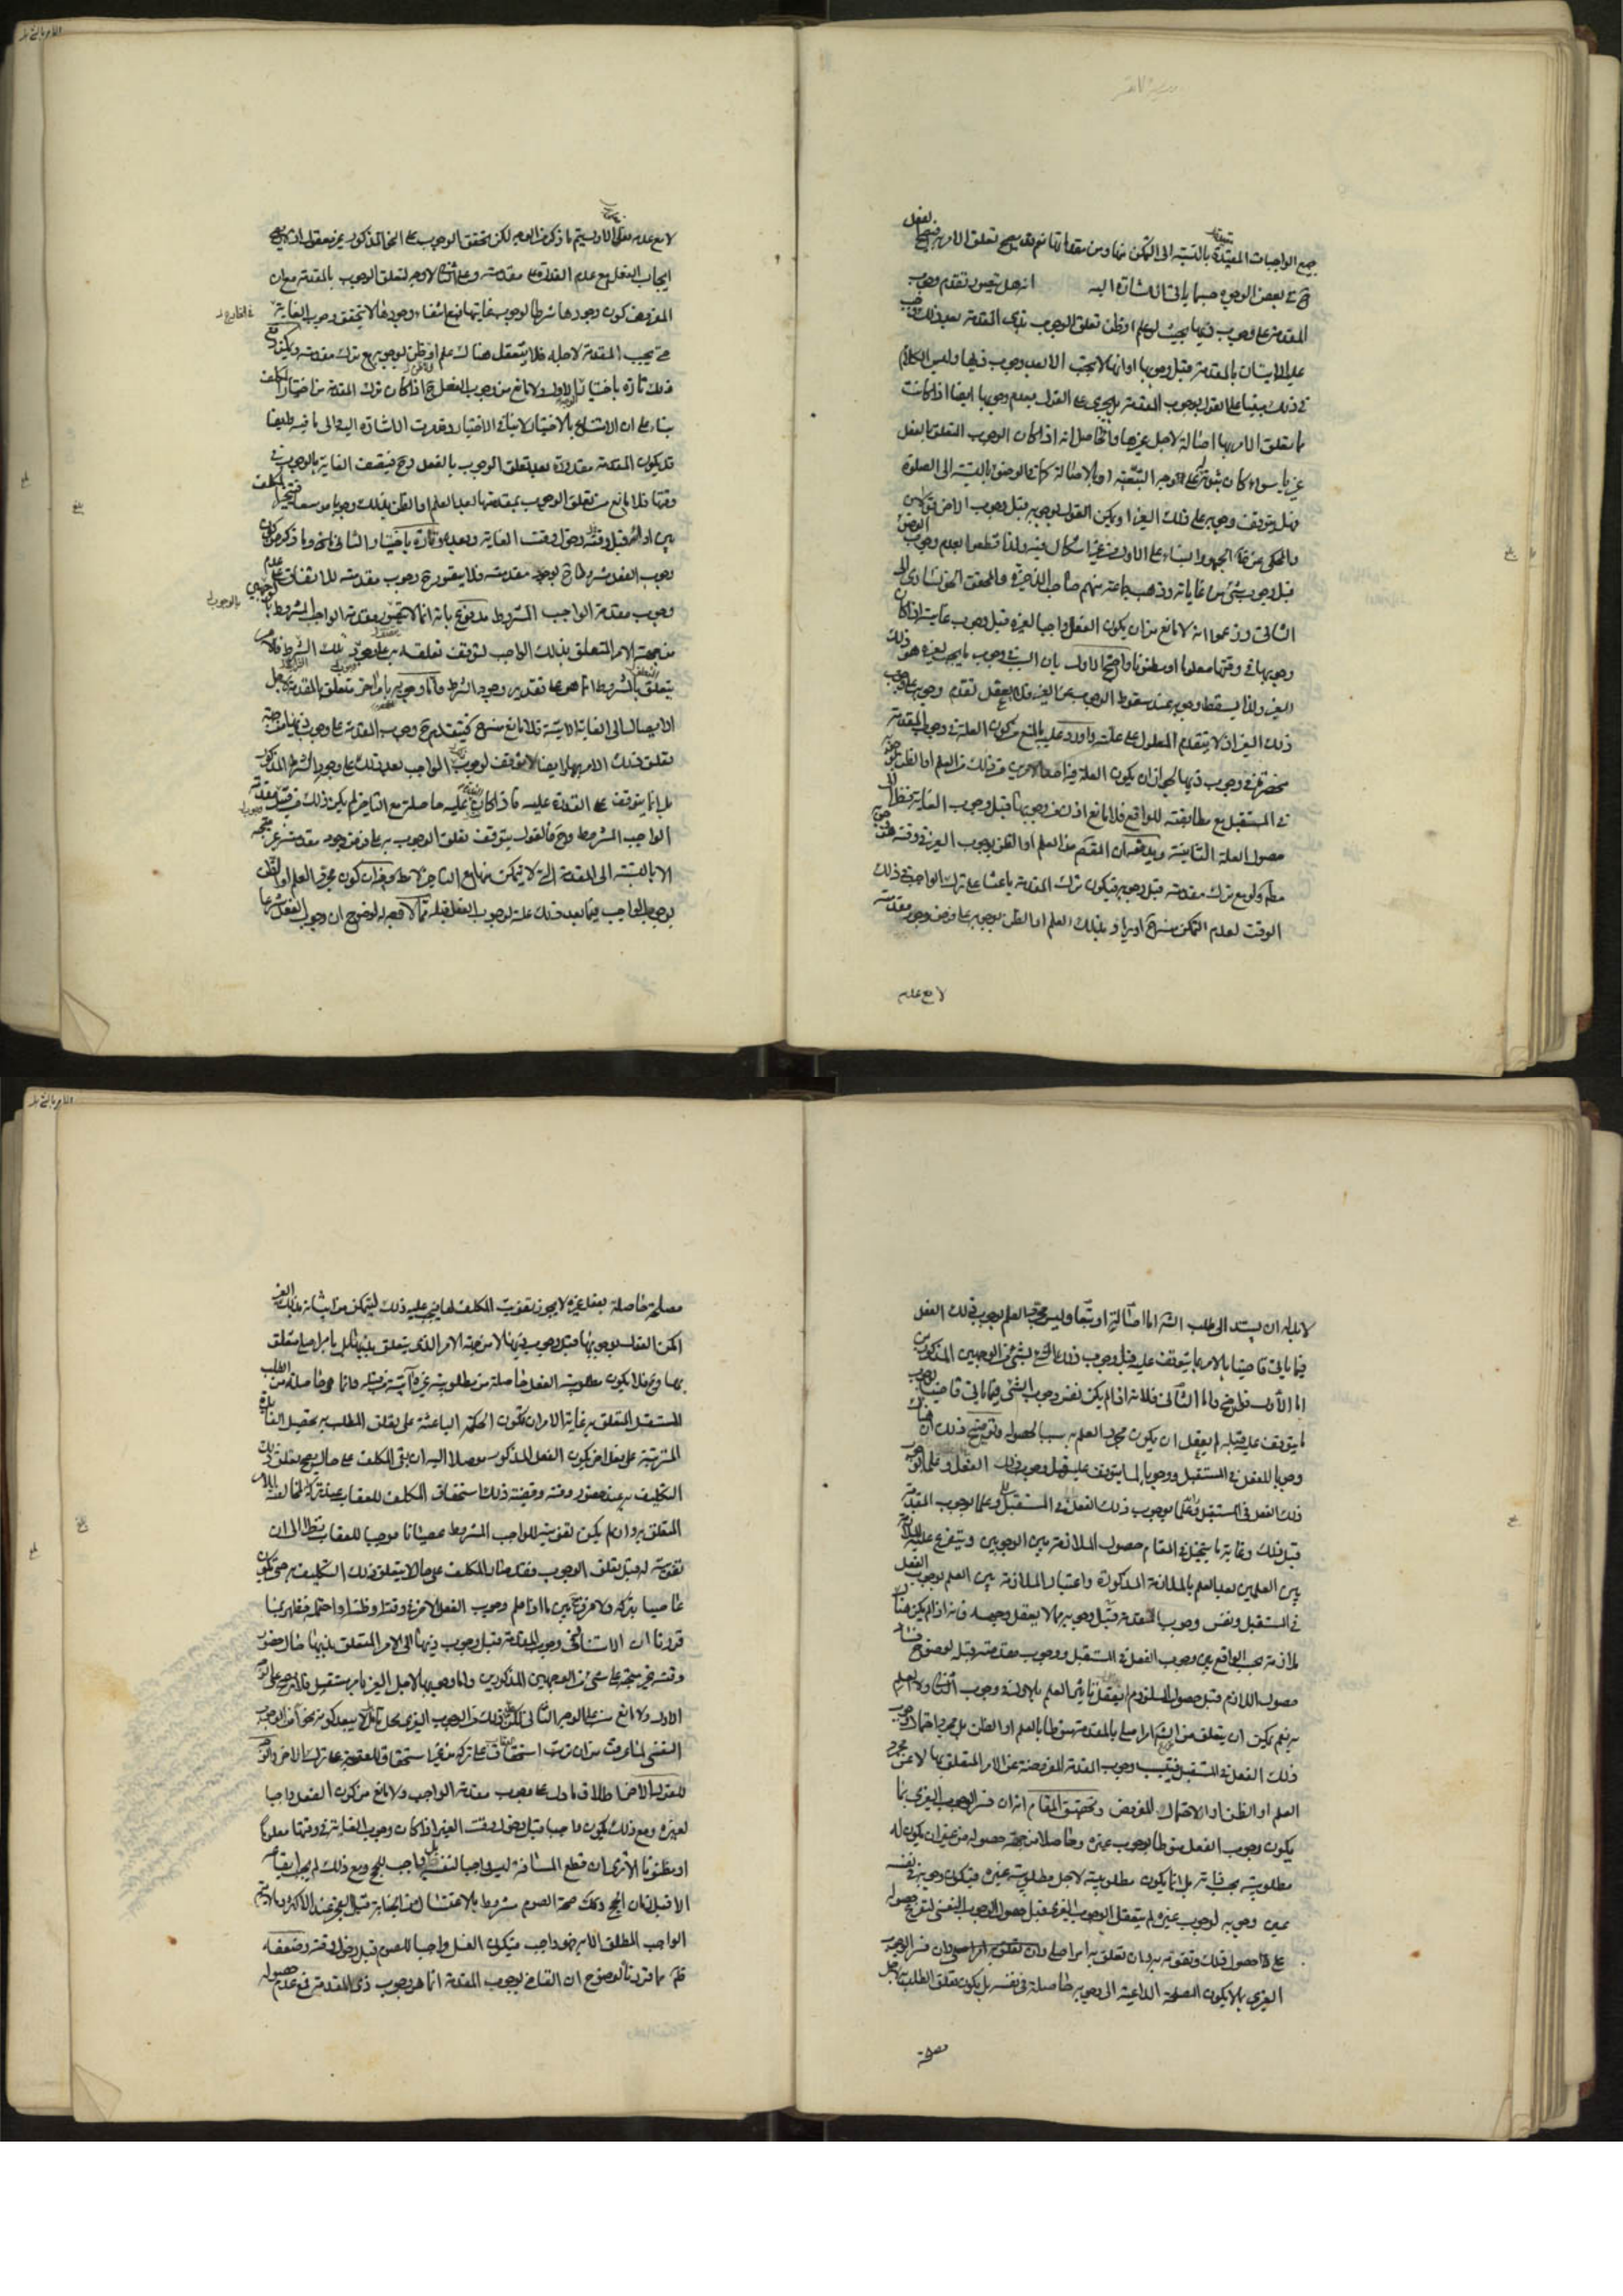 جميع الواجبات المقيدة بالنسبة الى التمكن منها ومن مقدماتها نعم قد يصح تعلق الامر
في بعض الوجوه حسبما ياتي الاشارة اليه انه هل يتصور تقدم وجوب
المقدمة على وجوب ذيها بحيث لو علم او ظن تعلق الوجوب بذي المقدمة بعد ذلك
عليه الاتيان بالمقدمة قبل وجوبها او انها لا تجب الا بعد وجوب ذيها وليس الكلام
في ذلك مبنيا على القول بوجوب المقدمة بل يجري على القول بعدم وجوبها ايضا اذا كانت
ما يتعلق الامر بها اصالة لاجل غيرها والحاصل انه اذا كان الوجوب المتعلق بالفعل
غيريا سواء كان ثبوته على الوجه التبعية او بالاصالة كما في الوضوء بالنسبة الى الصلوة
فهل يتوقف وجوبه على ذلك الغير او يمكن القول بوجوبه قبل وجوب الاخر
والمحكي عن الجمهور البناء على الاول من غير اشكال فيه ولذا قطعوا بعدم وجوب الوضوء
قبل وجوب شيء من غاياته وذهب جماعة منهم صاحب الذخيرة والمحقق الخونساري الى
الثاني وزعموا انه لا مانع من ان يكون الفعل واجبا لغيره قبل وجوب غايته اذا كان
وجوبها في وقتها معلوما او مظنونا واحتج الاول بان السبب في وجوب ما يجب لغيره هو
الغير ولذا يسقط وجوبه عند سقوط الوجوب عن الغير فلا يعقل تقدم وجوبه على وجوب
ذلك الغير اذ لا يتقدم المعلول على علته واورد عليه بالمنع من كون العلة في وجوب المقدمة
منحصرة في وجوب ذيها لجواز ان يكون العلة فيه احد الامرين من ذلك ومن العلم او الظن
في المستقبل مع مطابقته للواقع فلا مانع اذن من وجوبها قبل وجوب الغاية نظرا الى
حصول العلة الثانية ويدفعه ان المقدم من العلم او الظن بوجوب الغير في وقته
مط ولو مع ترك مقدمته قبل وجوبه فيكون ترك المقدمة باعثا على ترك الواجب في ذلك
الوقت لعدم التمكن منه ح او يراد بذلك العلم او الظن بوجوبه على فرض وجود مقدمته
لا مع عدم
لا مع عدمه فعلى الاول يتم ما ذكر من الوجه لكن تحقق الوجوب على النحو المذكور غير معقول اذ لا يصح
ايجاب الفعل مع عدم القدرة على مقدمته وعلى الثاني لا وجه لتعلق الوجوب بالمقدمة مع ان
المفروض كون وجودها شرطا لوجوب غايتها فمع انتفاء وجودها لا يتحقق وجوب الغاية
حتى يجب المقدمة لاجله فلا يتعقل هناك علم او ظن بوجوبه مع ترك مقدمته ويمكن دفع
ذلك تارة باختيار الاول ولا مانع من وجوب الفعل ح اذا كان ترك المقدمة من اختيار المكلف
بناء على ان الامتناع بالاختيار لا ينافي الاختيار وقد مرت الاشارة اليه والى ما فيه
قد يكون المقدمة مقدورة بعد تعلق الوجوب بالفعل ح فيتصف الغاية بالوجوب في
وقتها فلا مانع من تعلق الوجوب بمقدمتها بعد العلم او الظن بذلك وجوبا موسعا فتخير المكلف
بين ادائه قبل وقته دخول وقت الغاية وبعده وتارة باختيار الثاني وما ذكر من كون
وجوب الفعل مشروطا ح بوجود مقدمته فلا يتصور ح وجوب مقدمته للاتفاق على عدم
وجوب مقدمة الواجب المشروط مدفوع بانه انما لا تجب مقدمة الواجب المشروط
من جهة الامر المتعلق بذلك الواجب لتوقف تعلقه به على وجود تلك الشرط
يتعلق بالشروط انما هو على تقدير وجود الشرط واما وجوبه بامر اخر متعلق بالمقدمة لاجل
الايصال الى الغاية الاتية فلا مانع منه ح فيتقدم ح وجوب المقدمة على وجوب ذيها
وتعلق ذلك الامر بها ايضا لا يتوقف لوجوب الواجب بعد ذلك على وجود الشرط المذكور
بل انما يتوقف على القدرة عليه فاذا كان القدرة عليه حاصلة مع التاخير لم يكن ذلك من قبيل مقدمة
الواجب المشروط وح فالقول بتوقف تعلق الوجوب به على فرض وجود مقدمته غير متجه
الا بالنسبة الى المقدمة التي لا يتمكن منها مع التاخير لا مط وفيه ان كون مجرد العلم او الظن
بوجوب الواجب فيما بعد ذلك علة لوجوب الفعل قبله مما لا وجه له لوضوح ان وجوب الفعل شرعا
لا بد له ان يستند الى طلب الشرع اما اصالة او تبعا وليس مجرد العلم بوجوب ذلك الفعل
فيما ياتي قاضيا بالامر بما يتوقف عليه قبل وجوب ذلك الشيء بشيء من الوجهين المذكورين
اما الاول فواضح واما الثاني فلانه اذا لم يكن نفس وجوب الشيء فيما ياتي قاضيا بوجوب
ما يتوقف عليه قبله لم يعقل ان يكون مجرد العلم به سببا لحصوله وتوضيح ذلك ان هناك
وجوبا للفعل في المستقبل ووجوبا لما يتوقف عليه قبل وجوب ذلك الفعل وعلما بوجوب
ذلك الفعل في المستقبل وعلما بوجوب المقدمة
قبل ذلك وغاية ما يتخيل في المقام حصول الملازمة بين الوجوبين ويتفرع عليه الملازمة
بين العلمين بعد العلم بالملازمة المذكورة واعتبار الملازمة بين العلم بوجوب الفعل
في المستقبل ونفس وجوب المقدمة قبل وجوبه مما لا يعقل وجهه فانه اذا لم يكن هناك
ملازمة بحسب الواقع بين وجوب الفعل في المستقبل ووجوب مقدمته قبله لوضوح فساد
حصول اللازم قبل حصول الملزوم لم يعقل تاثير العلم بالاول في وجوب الثاني ولا العلم
به نعم يمكن ان يتعلق من الشرع امر اصلي بالمقدمة منوطا بالعلم او الظن بل مجرد احتمال وجوب
ذلك الفعل في المستقبل فيتسبب وجوب المقدمة المفروضة عن الامر المتعلق بها لا عن مجرد
العلم او الظن او الاحتمال المفروض وتحقيق المقام انه ان فسر الوجوب الغيري بما
يكون وجوب الفعل منوطا بوجوب غيره وحاصلا من جهة حصوله من غير ان يكون له
مطلوبية بحسب ذاته بل انما يكون مطلوبيته لاجل مطلوبية غيره فيكون وجوبه في نفسه
عين وجوبه لوجوب غيره لم يتعقل الوجوب الغيري قبل حصول الوجوب النفسي لتفرع حصوله
على حصول ذلك وتقومه به وان تعلق به امر اصلي وان فسر الوجوب
الغيري بما لا يكون المصلحة الداعية الى وجوبه حاصلة في نفسه بل يكون تعلق الطلب به لاجل
مصلحة
مصلحة حاصلة بفعل غيره لا يجوز تفويت المكلف لها فيجب عليه ذلك ليتمكن من اتيانه بذلك الغير
امكن القول بوجوبها قبل وجوب ذيها لا من جهة الامر الذي يتعلق بذيها بل بامر اصلي متعلق
بها وح فلا يكون مطلوبية الفعل حاصلة من مطلوبية غيره آتية من قبله وانما هي حاصلة من الطلب
المستقل المتعلق به غاية الامر ان يكون الحكمة الباعثة على تعلق الطلب به تحصيل الفائدة
المترتبة على فعل اخر يكون الفعل المذكور موصلا اليه ان بقي المكلف على حال يصح تعلق ذلك
التكليف به عند حضور وقته وقضية ذلك استحقاق المكلف للعقاب عند تركه لمخالفته الامر
المتعلق به وان لم يكن تفويته للواجب المشروط عصيانا موجبا للعقاب نظرا الى ان
تفويته له قبل تعلق الوجوب فقد صار المكلف على حال لا يتعلق ذلك التكليف به حتى يكون
عاصيا بتركه ولا فرق ح بين ما اذا علم وجوب الفعل الاخر في وقته او ظنه او احتمله فظهر بما
قررنا ان الاستناد في وجوب المقدمة قبل وجوب ذيها الى الامر المتعلق بذيها حال حضور
وقته غير متجه على شيء من الوجهين المذكورين واما وجوبها لاجل الغير بامر مستقل فلا يصح على الوجه
الاول ولا مانع منه على الوجه الثاني لكن كون ذلك من الوجوب الغيري محل تامل لا يبعد كونه نحوا من الوجوب
النفسي لما عرفت من ان ترتب استحقاق على تركه من غير استحقاق للعقوبة على ترك الاخر
للقول الاخر اطلاق ما دل على وجوب مقدمة الواجب ولا مانع من كون الفعل واجبا
لغيره ومع ذلك يكون واجبا قبل دخول وقت الغير اذا كان وجوب الغاية في وقتها معلوما
او مظنونا الا ترى ان قطع المسافة ليس واجبا لنفسه بل واجب للحج ومع ذلك لم يجب ايقاعه
الا قبل زمان الحج وكذلك صحة الصوم مشروط بالاغتسال من الجنابة قبل الفجر عند الاكثر
الواجب المطلق الا به فهو واجب فيكون الغسل واجبا للصوم قبل دخول وقته وضعفه
ظهر مما قررنا لوضوح ان القاضي بوجوب المقدمة انما هو وجوب ذي المقدمة فمع عدم حصوله